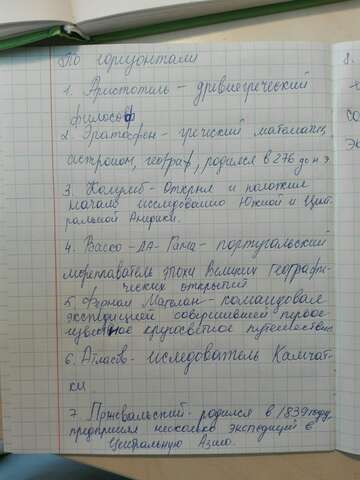 По горизонтали
8.
1. Аристотиль – древнегреческий
философ
2. Эратосфен – греческий математик,
астроном, географ, родился в 276 до н э.
3. Колумб – Открыл и положил
начало исследованию Южной и Цент-
ральной Америки.
4. Васко-да-Гама – португальский
мореплаватель эпохи Великих географи-
ческих открытий
5. Фернан Магелан – командовал
экспедицией совершившей первое
известное кругосветное путешествие
6. Атласов – исследователь Камчат-
ки
7. Пржевальский – родился в 1839 году,
предпринял несколько экспедиций в
Центральную Азию.